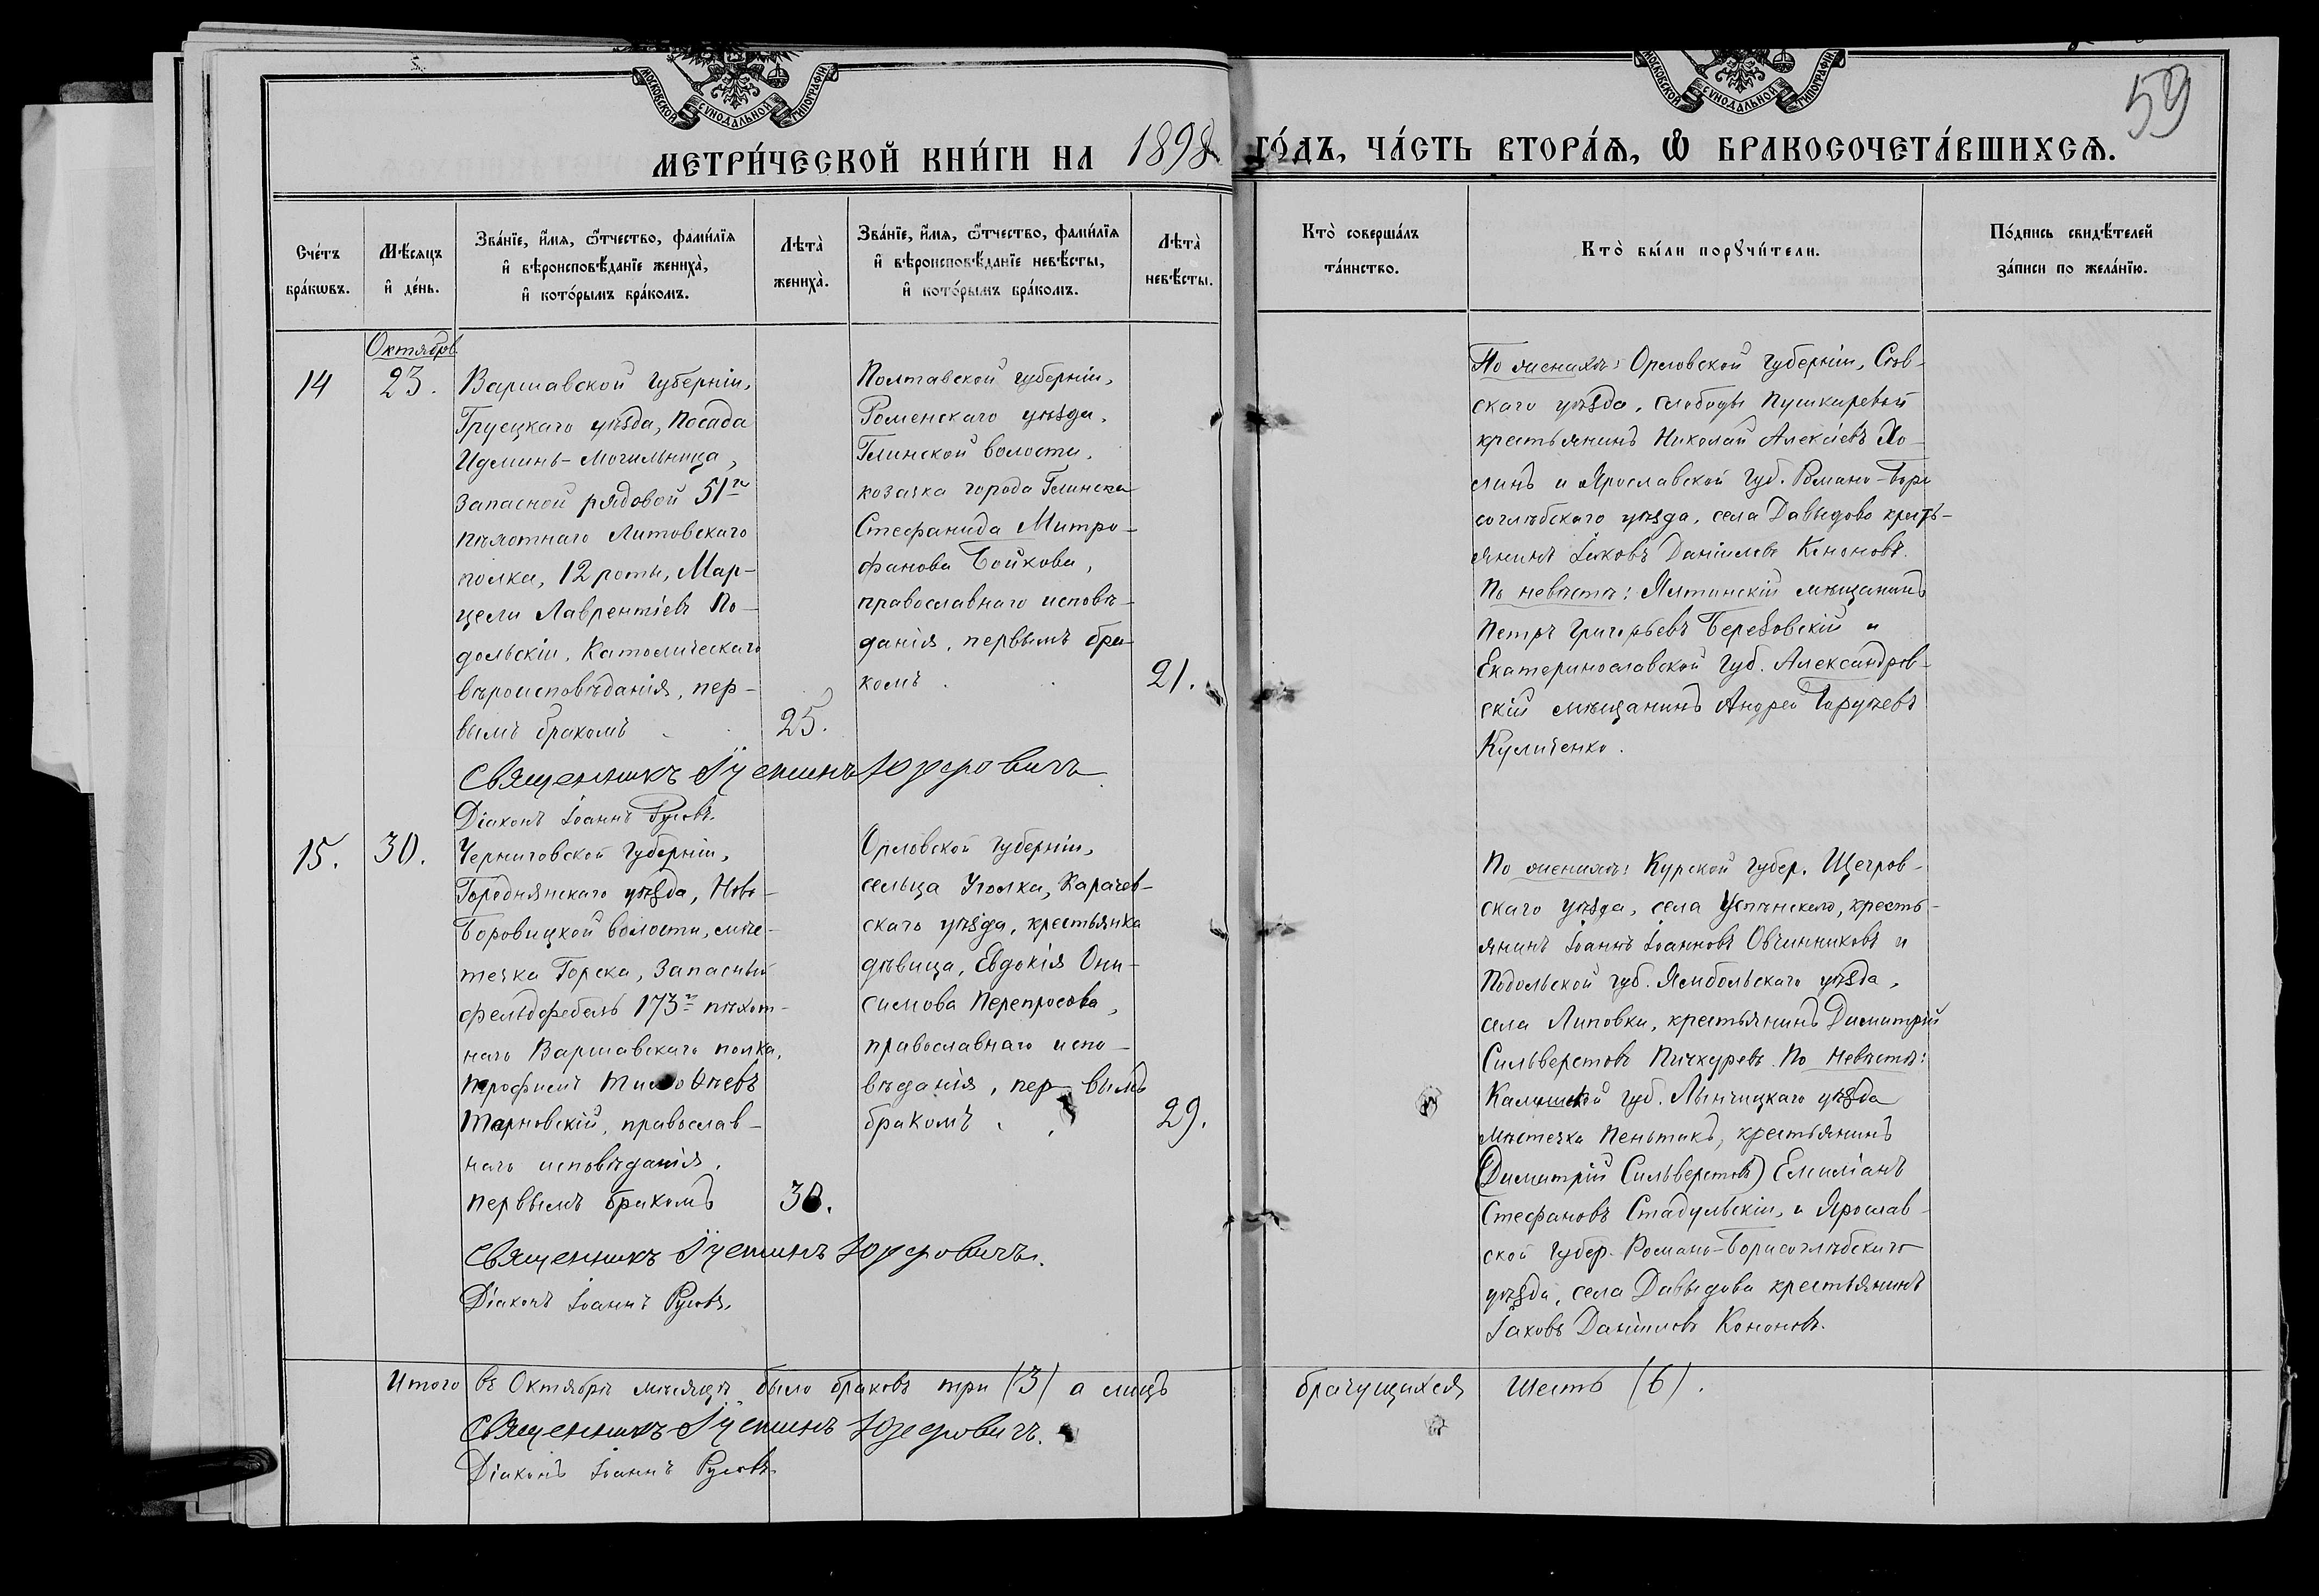 МОСКОВСКОЙ СѴНОДАЛЬНОЙ ТИПОГРАФІИ
МОСКОВСКОЙ СѴНОДАЛЬНОЙ ТИПОГРАФІИ
59
МЕТРИ́ЧЕСКОЙ КНИ́ГИ НА 1898 ГО́ДЪ, ЧА́СТЬ ВТОРА́Ѧ, Ѡ҆ БРАКОСОЧЕТА́ВШИХСѦ.
Сче́тъ
бра́кѡвъ.
Мѣ́сяцъ
и҆ де́нь.
Зва́нїе, и҆́мѧ, ѻ҆́тчество, фами́лїѧ
и҆ вѣроисповѣ́данїе жениха̀,
и҆ кото́рымъ бра́комъ.
Лѣта̀
жениха̀.
Зва́нїе, и҆́мѧ, ѻ҆́тчество, фами́лїѧ
и҆ вѣроисповѣ́данїе невѣ́сты,
и҆ кото́рымъ бра́комъ.
Лѣта̀
невѣ́сты.
Кто̀ соверша́лъ
та́инство.
Кто̀ бы́ли порꙋчи́тели.
По́дпись свидѣ́телей
за́писи по жела́нїю.
Октябрь
14
23.
Варшавской губерніи,
Груецкаго уѣзда, Посада
Могильница,
запасной рядовой 51го
пѣхотнаго Литовскаго
полка, 12 роты, Мар-
цели Лаврентіевъ По-
дольскій, Католическаго
вѣроисповѣданія, пер-
вымъ бракомъ
25.
Полтавской губерніи,
Роменскаго уѣзда,
Глинской волости,
козачка города Глинска
Стефанида Митро-
фанова Бойкова,
православнаго исповѣ-
данія, первымъ бра-
комъ
21.
По женихѣ: Орловской губерніи, Сѣв-
скаго уѣзда, слободы Пушкаревой
крестьянинъ Николай Алексіевъ Хо-
линъ и Ярославской губ. Романо-Бори
соглѣбскаго уѣзда, села Давыдово кресть-
янинъ Іаковъ Даніиловъ Кононовъ.
По невѣстѣ: Ялтинскій мѣщанинъ
Петръ Григорьевъ Березовскій и
Екатеринославской губ. Александров-
скій мѣщанинъ Андрей
Куличенко.
Священникъ Іустинъ Юзефовичъ
Діаконъ Іоаннъ Русовъ.
15.
30.
Черниговской губерніи,
Городнянскаго уѣзда, Ново-
Боровицкой волости, мѣс-
течка Горска, запасный
фельдфебель 173го пѣхот-
наго Варшавскаго полка,
Трофимъ Тимоѳеевъ
Тарновскій, православ-
наго исповѣданія,
первымъ бракомъ
30.
Орловской губерніи,
сельца Уголка, Карачев-
скаго уѣзда, крестьянка
дѣвица, Евдокія Они-
симова Перепросова,
православнаго испо-
вѣданія, первымъ
бракомъ
29.
По женихѣ: Курской губер. Щегров-
скаго уѣзда, села Успѣнскаго, кресть-
янинъ Іоаннъ Іоанновъ Овчинниковъ и
Подольской губ. Ямбольскаго уѣзда,
села Липовки, крестьянинъ Димитрій
Сильверстовъ Пичкуревъ. По невѣстѣ:
Калишской губ. Лынчицкаго уѣзда
мѣстечка Пеньтакъ, крестьянинъ
(Димитрій Сильверстовъ) Емиліанъ
Стефановъ Стадульскій, и Ярослав-
ской губер. Романо-Борисоглѣбскаго
уѣзда, села Давыдова крестьянинъ
Іаковъ Даніиловъ Кононовъ.
Священникъ Іустинъ Юзефовичъ.
Діаконъ Іоаннъ Русовъ.
Итого въ Октябрѣ мѣсяцѣ было браковъ три (3) а лицъ брачущихся шесть (6).
Священникъ Іустинъ Юзефовичъ.
Діаконъ Іоаннъ Русовъ.